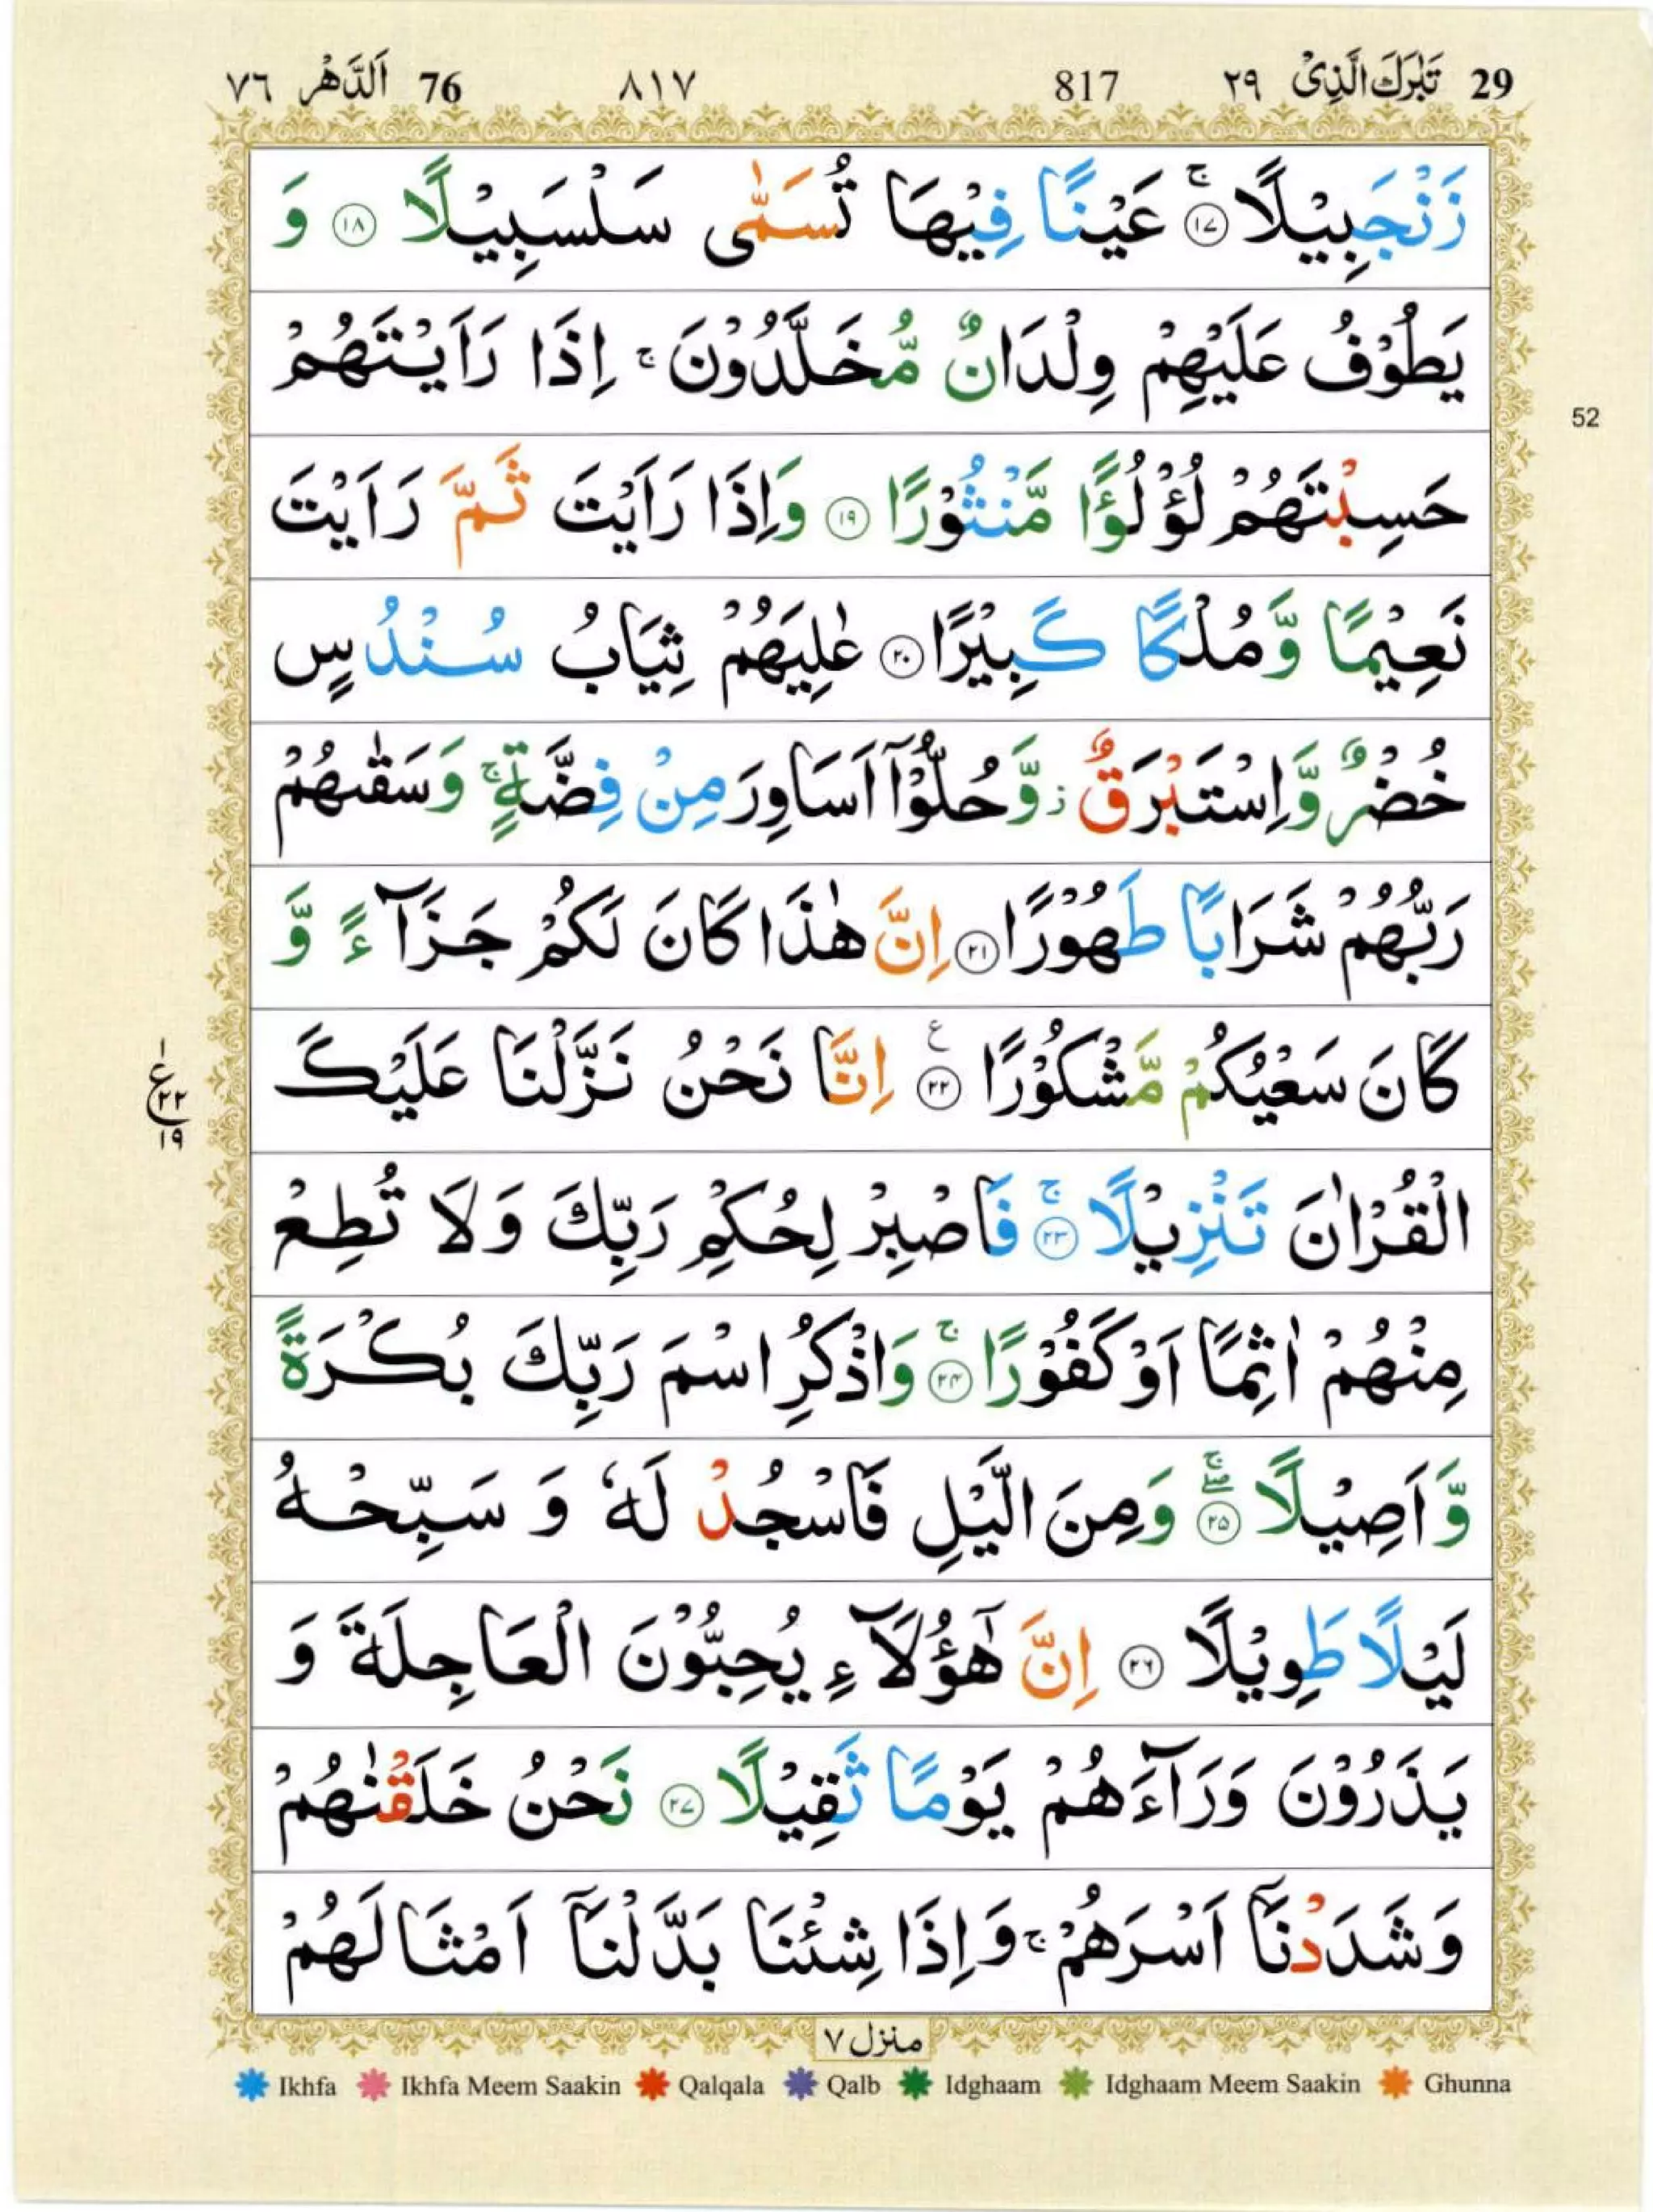 29 تَبٰرَكَ الَّذِىْ ٢٩ 817 ٨١٧ 76 اَلدَّهْر ٧٦
زَنْجَبِيْلًا ۚ ﴿۱۷﴾ عَيْنًا فِيْهَا تُسَمّٰى سَلْسَبِيْلًا ﴿۱۸﴾ وَ
يَطُوْفُ عَلَيْهِمْ وِلْدَانٌ مُّخَلَّدُوْنَ ۚ اِذَا رَاَيْتَهُمْ
52
حَسِبْتَهُمْ لُؤْلُؤًا مَّنْثُوْرًا ﴿۱۹﴾ وَاِذَا رَاَيْتَ ثَمَّ رَاَيْتَ
نَعِيْمًا وَّمُلْكًا كَبِيْرًا ﴿۲۰﴾ عٰلِيَهُمْ ثِيَابُ سُنْدُسٍ
خُضْرٌ وَّاِسْتَبْرَقٌ ز وَّحُلُّوْٓا اَسَاوِرَ مِنْ فِضَّةٍ ۚ وَسَقٰىهُمْ
رَبُّهُمْ شَرَابًا طَهُوْرًا ﴿۲۱﴾ اِنَّ هٰذَا كَانَ لَكُمْ جَزَآءً وَّ
كَانَ سَعْيُكُمْ مَّشْكُوْرًا ﴿۲۲﴾ ع اِنَّا نَحْنُ نَزَّلْنَا عَلَيْكَ
١ ع ٢٢ ١٩
الْقُرْاٰنَ تَنْزِيْلًا ۚ ﴿۲۳﴾ فَاصْبِرْ لِحُكْمِ رَبِّكَ وَلَا تُطِعْ
مِنْهُمْ اٰثِمًا اَوْ كَفُوْرًا ۚ ﴿۲۴﴾ وَاذْكُرِ اسْمَ رَبِّكَ بُكْرَةً
وَّاَصِيْلًا ۖۚ ﴿۲۵﴾ وَمِنَ الَّيْلِ فَاسْجُدْ لَهٗ وَ سَبِّحْهُ
لَيْلًا طَوِيْلًا ﴿۲۶﴾ اِنَّ هٰٓؤُلَآءِ يُحِبُّوْنَ الْعَاجِلَةَ وَ
يَذَرُوْنَ وَرَآءَهُمْ يَوْمًا ثَقِيْلًا ﴿۲۷﴾ نَحْنُ خَلَقْنٰهُمْ
وَشَدَدْنَآ اَسْرَهُمْ ۚ وَاِذَا شِئْنَا بَدَّلْنَآ اَمْثَالَهُمْ
منزل ٧
Ikhfa Ikhfa Meem Saakin Qalqala Qalb Idghaam Idghaam Meem Saakin Ghunna